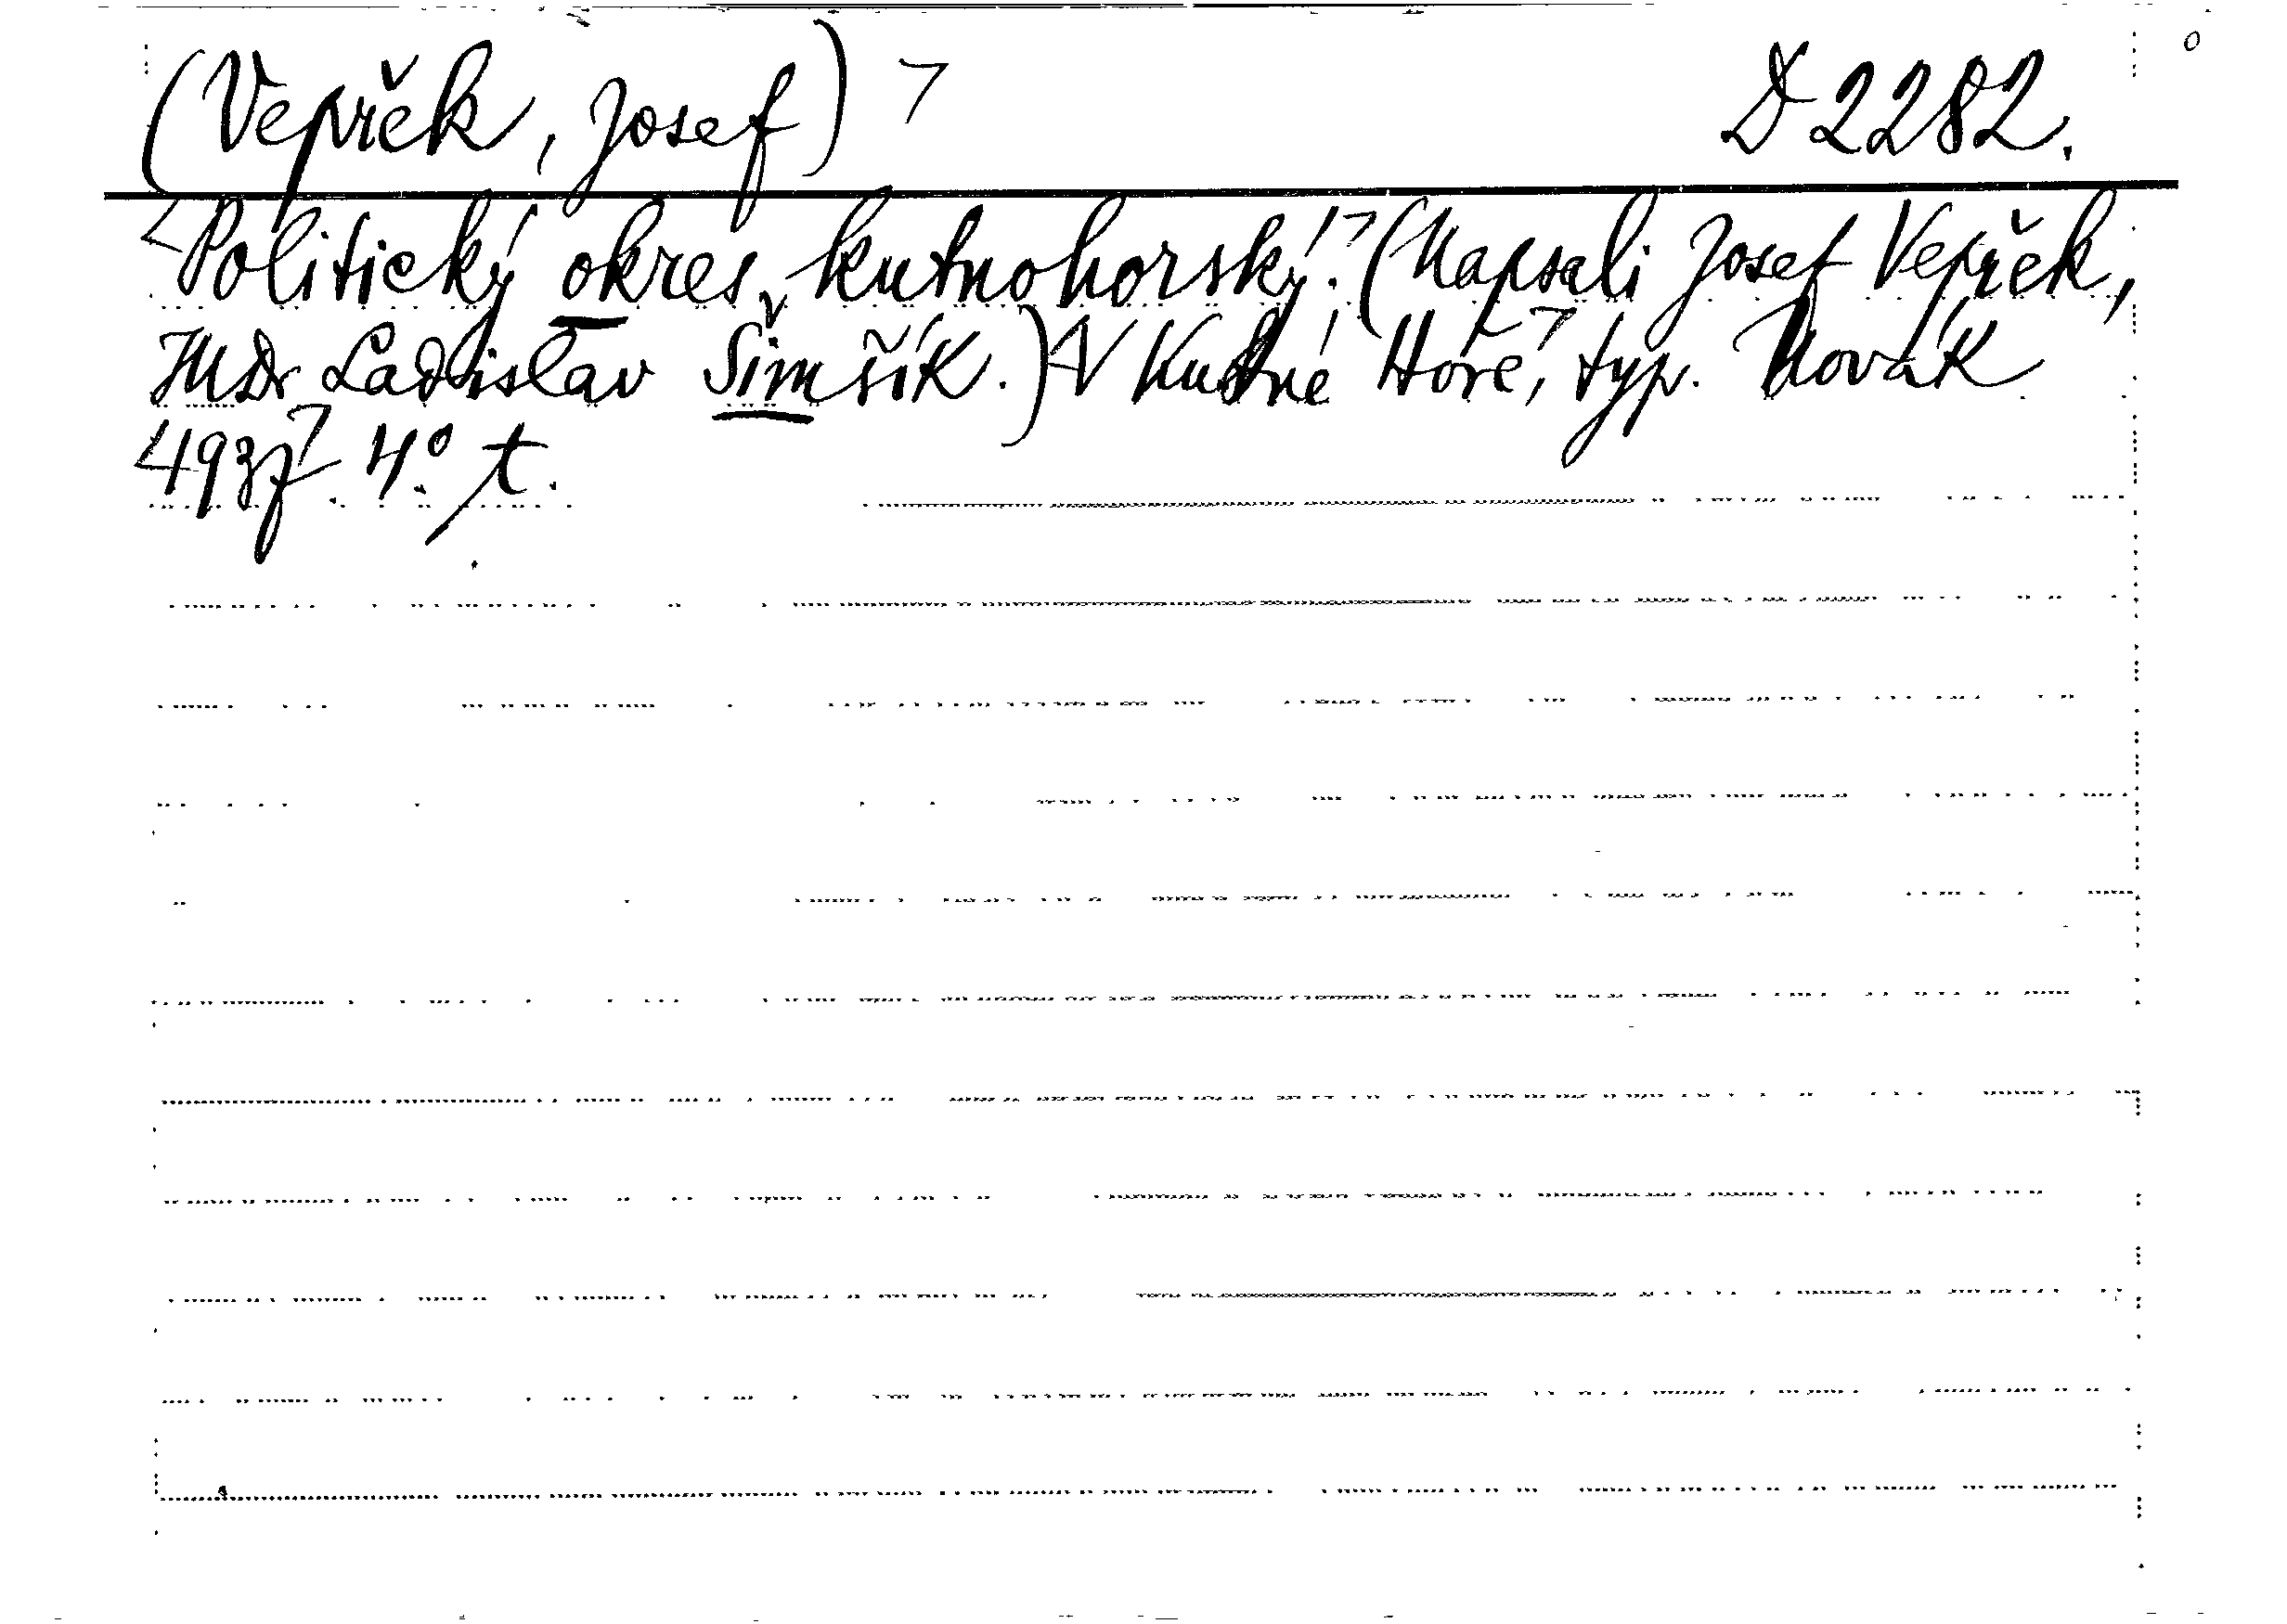 (Vepřek, Josef)
D 2282.
Politický okres kutnohorský. (Napsali Josef Vepřek,
JUDr Ladislav Šimšík.) V Kutné Hoře, typ. Novák
1937. 4° t.